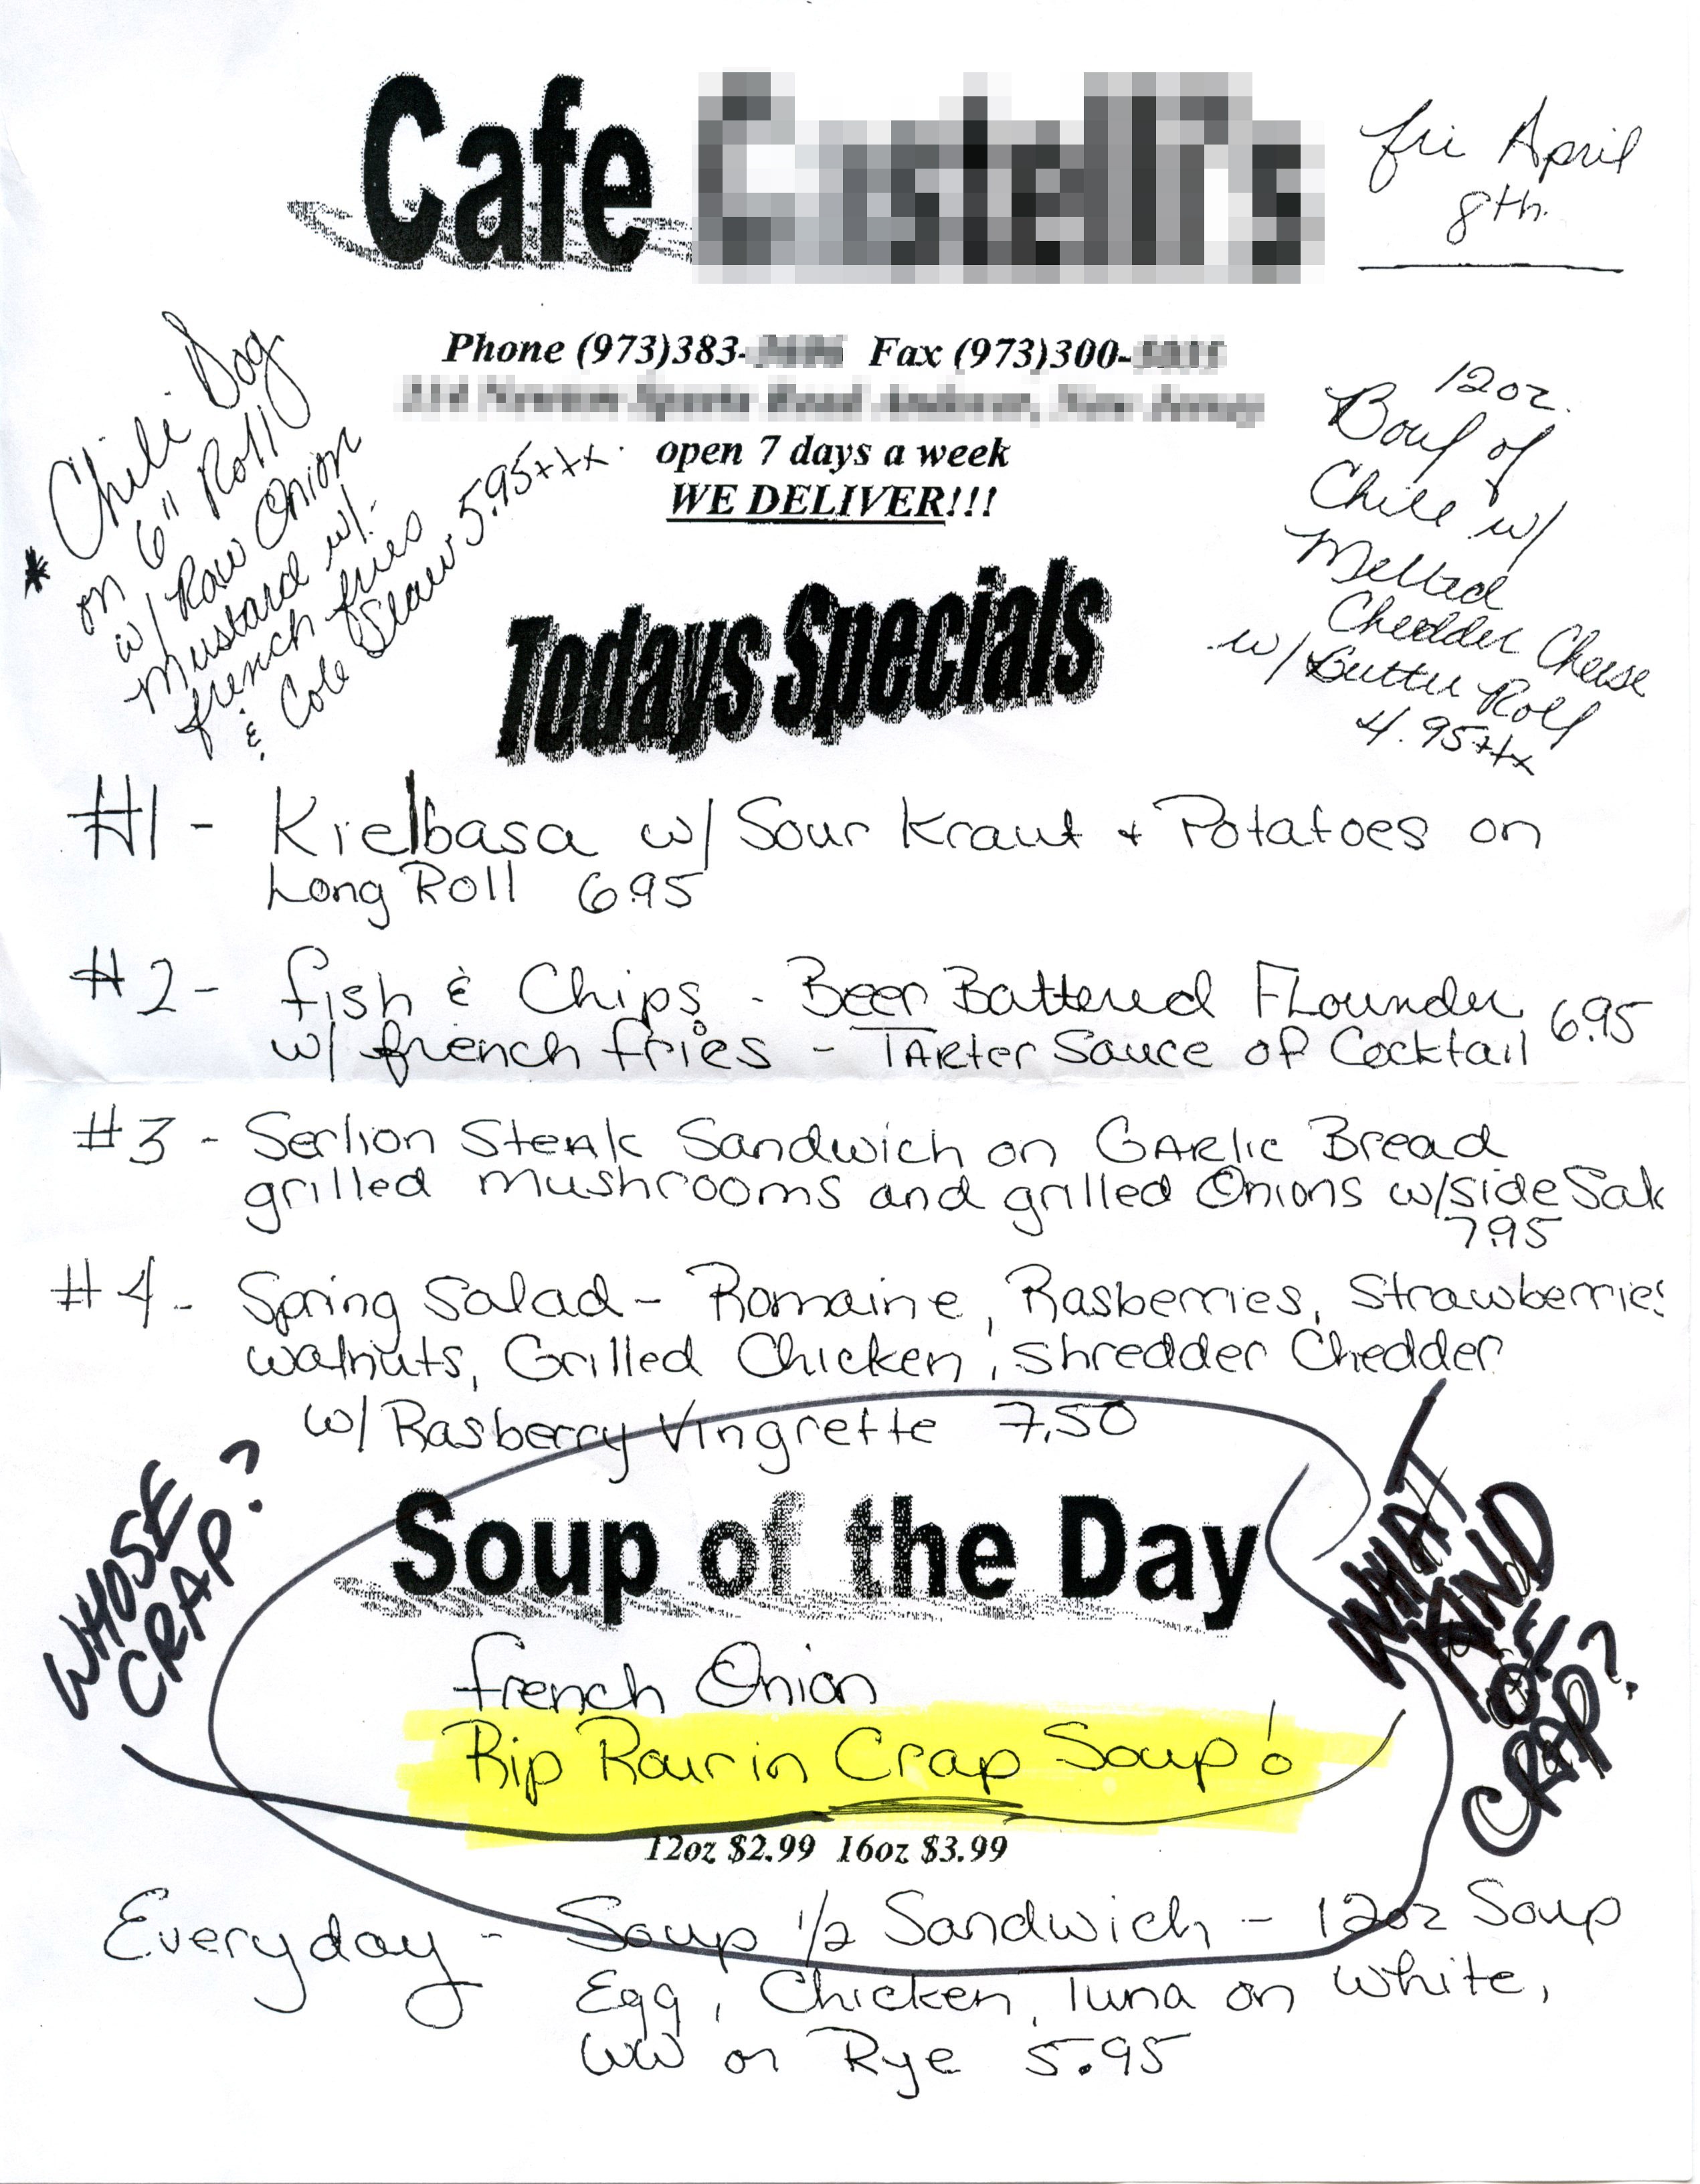 Cafe
fri April
8th.
Phone (973)383- Fax (973)300-
open 7 days a week
WE DELIVER!!!
* Chili Dog
on 6" Roll
w/ Raw Onion
Mustard w/
french fries
& Cole Slaw 5.95+++
12oz.
Bowl of
Chile w/
Melted
Chedder Cheese
w/ Butter Roll
4.95+++
Todays Specials
#1 - Kielbasa w/ Sour Kraut + Potatoes on
Long Roll 6.95
#2 - fish & Chips - Beer Battered FLounder 6.95
w/ french fries - TARter Sauce of Cocktail
#3 - Serlion SteAk Sandwich on GARlic Bread
grilled mushrooms and grilled Onions w/side Sak
7.95
#4 - Spring Salad - Romaine, Rasberries, Strawberries
walnuts, Grilled Chicken, shredder Chedder
w/ Rasberry Vingrette 7.50
WHOSE
CRAP?
WHAT
KIND
OF
CRAP?
Soup of the Day
french Onion
Rip Rourin Crap Soup!
12oz $2.99 16oz $3.99
Everyday - Soup 1/2 Sandwich - 12oz Soup
Egg, Chicken, Tuna on white,
WW or Rye 5.95